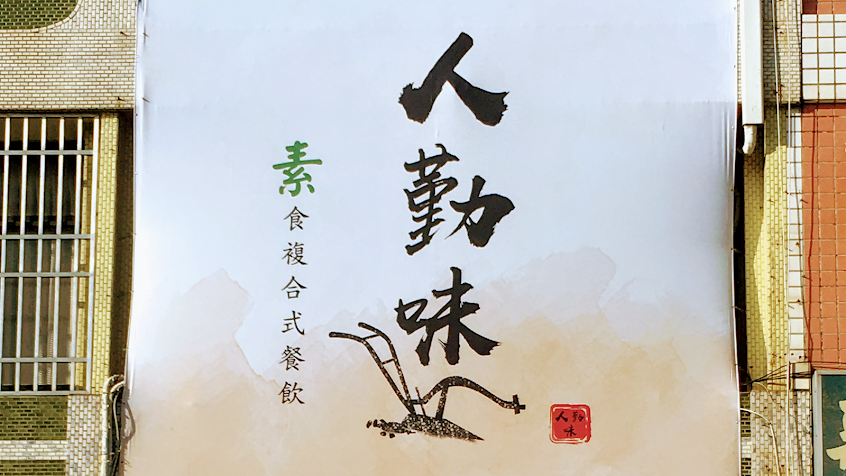 人勤味
素食複合式餐飲
人勤味